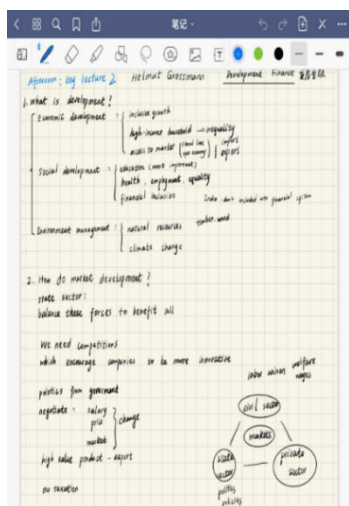 笔记
Afternoon: key lecture 2 Helmut Grossmann Development Finance
1. what is development?
Economic development: inclusive growth
high-income household → inequality
access to market import export
Social development: education (most important)
health, employment, equality
financial inclusion
India don't included into financial system
Environment management: natural resources timber.wood
climate change
2. How do market development?
state sector:
balance these forces to benefit all
We need competitions
which encourage companies to be more innovative
labor union welfare
wages
politics from goverment
negotiate: salary
price
market
change
civil sector
markets
high value product - export
state sector
private sector
no taxation
politics
policies